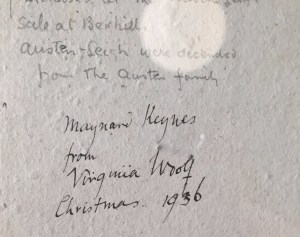 sale at Bexhill.
Austen-Leigh were descended
from the Austen family
Maynard Keynes
from
Virginia Woolf
Christmas. 1936